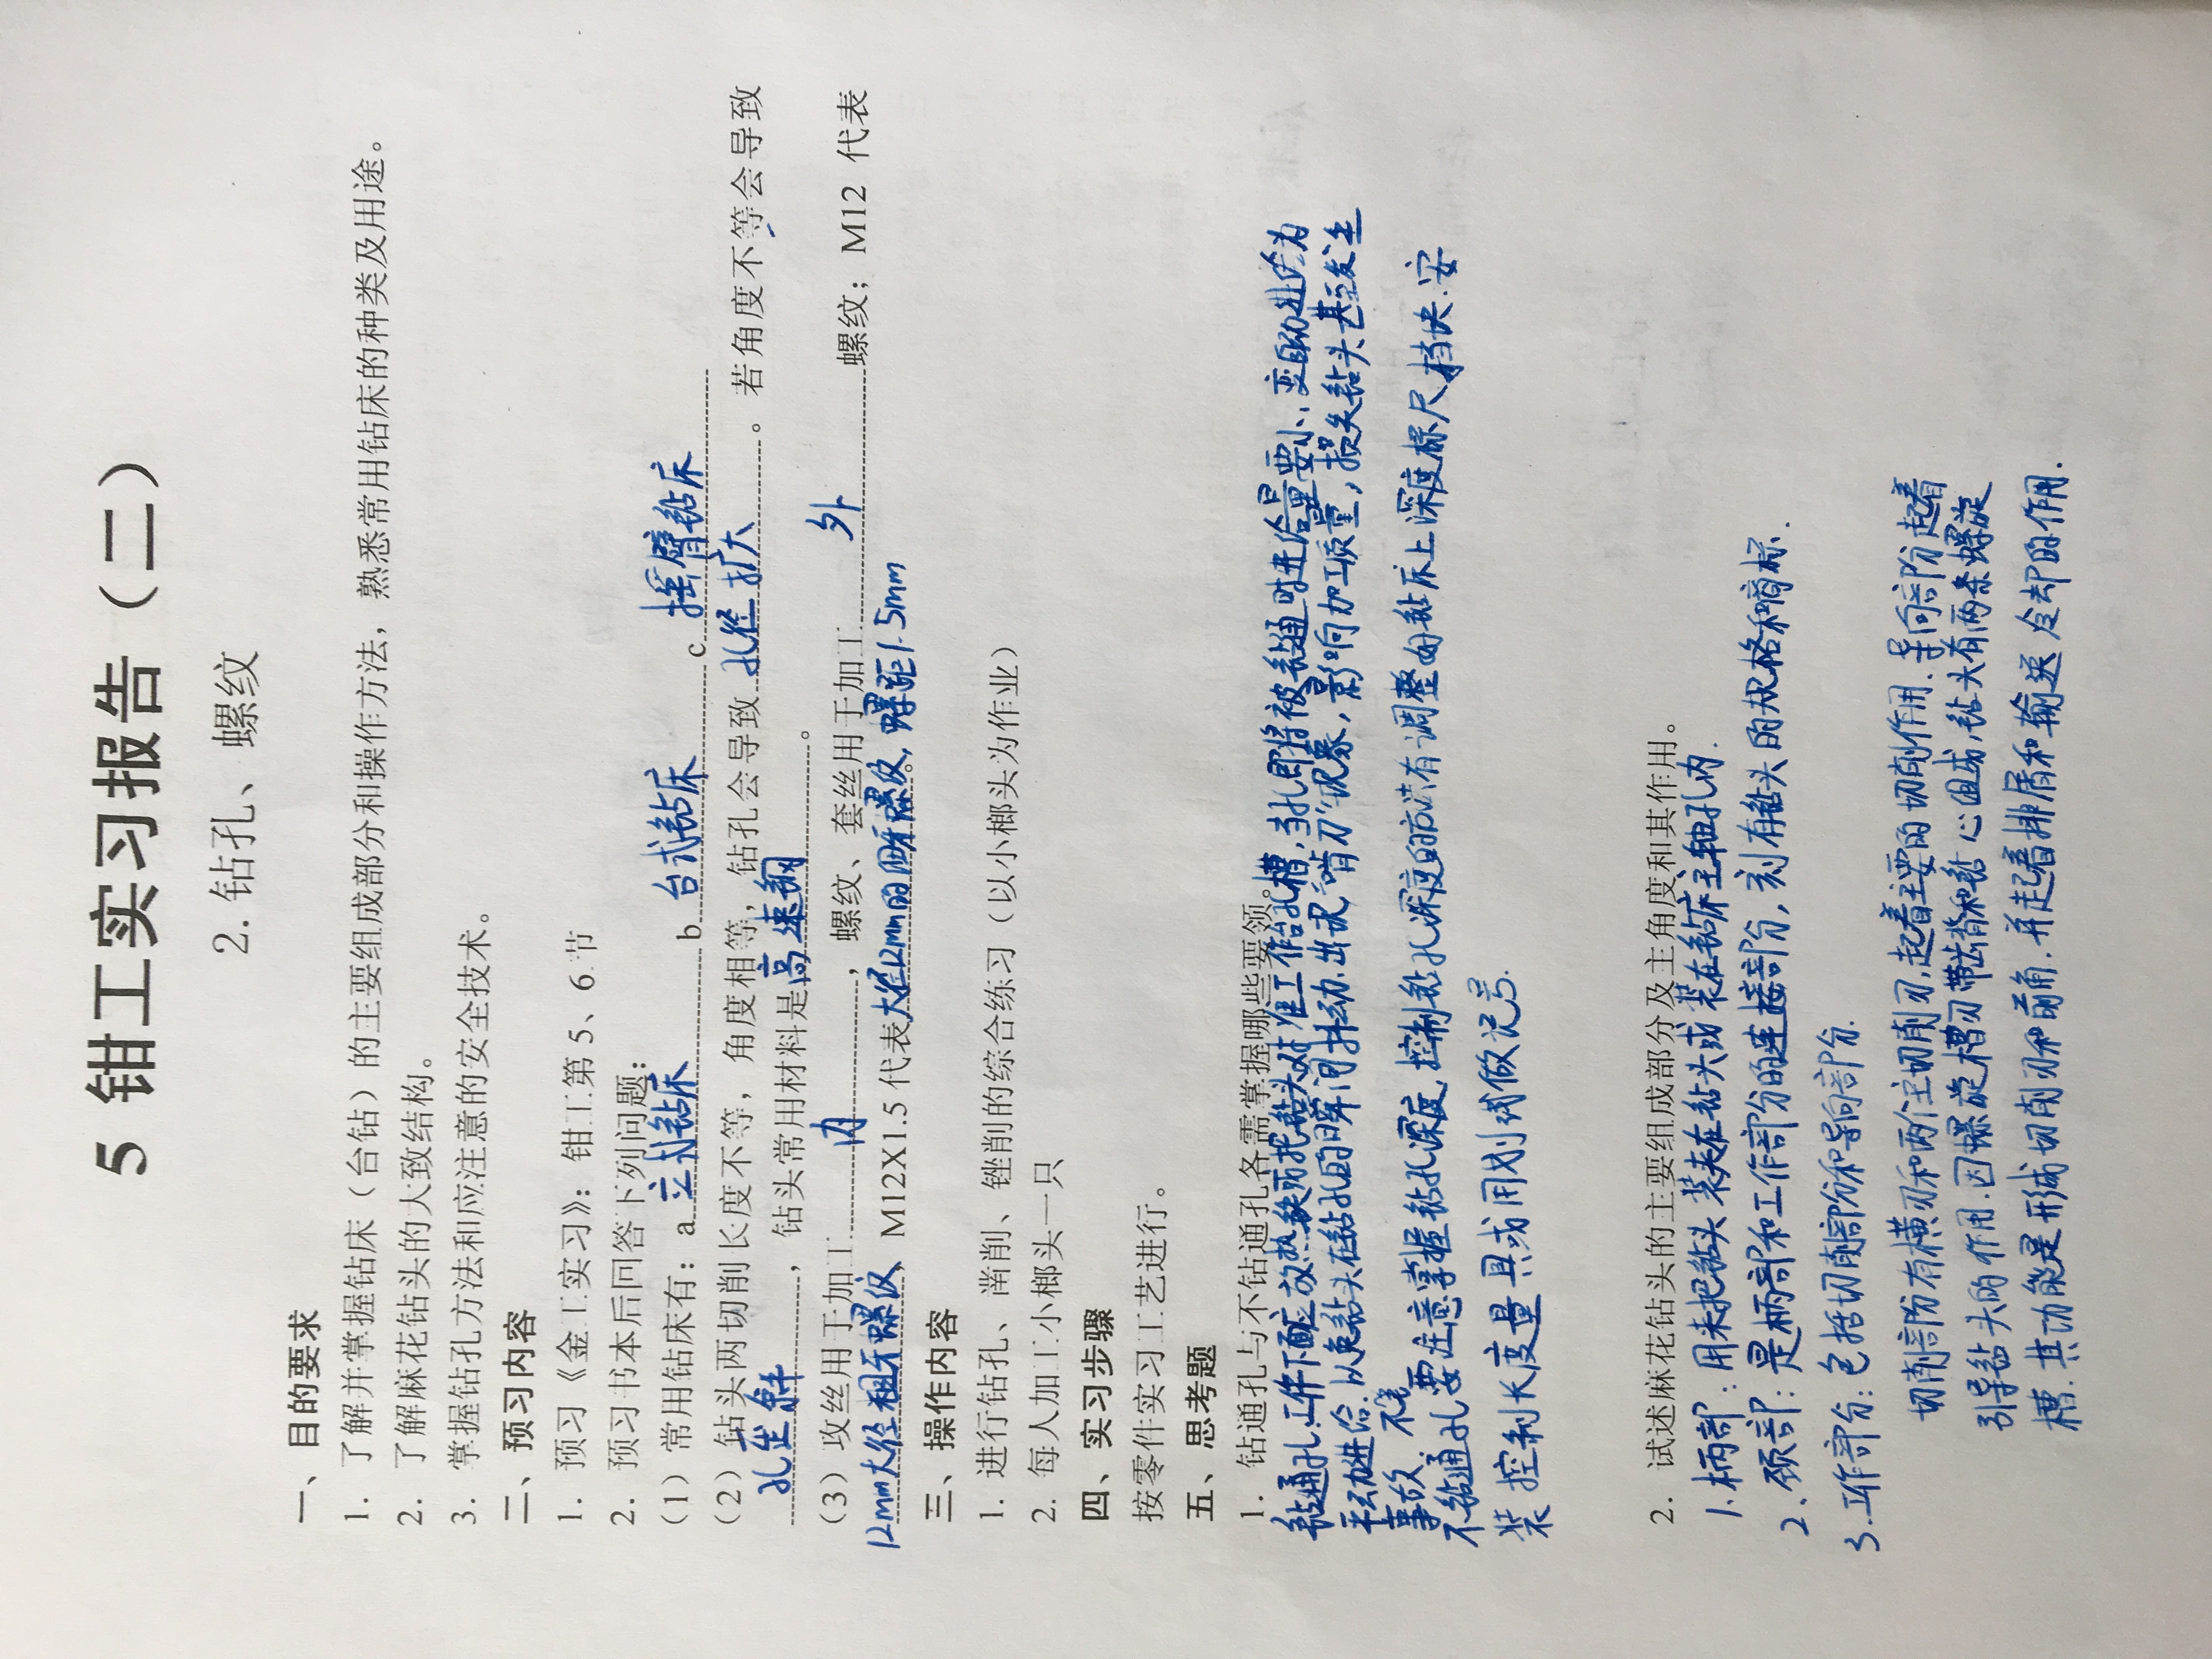 5 钳工实习报告（二）
2. 钻孔、螺纹
一、目的要求
1. 了解并掌握钻床（台钻）的主要组成部分和操作方法，熟悉常用钻床的种类及用途。
2. 了解麻花钻头的大致结构。
3. 掌握钻孔方法和应注意的安全技术。
二、预习内容
1. 预习《金工实习》：钳工第 5、6 节
2. 预习书本后回答下列问题：
（1）常用钻床有：a 立式钻床 b 台式钻床 c 摇臂钻床
（2）钻头两切削长度不等，角度相等，钻孔会导致 孔径扩大 。若角度不等会导致
孔坐斜 ，钻头常用材料是 高速钢 。
（3）攻丝用于加工 内 ，螺纹、套丝用于加工 外 螺纹；M12 代表
12mm大径粗牙螺纹, M12X1.5 代表 大径12mm的细牙螺纹, 螺距1.5mm 。
三、操作内容
1. 进行钻孔、凿削、锉削的综合练习（以小榔头为作业）
2. 每人加工小榔头一只
四、实习步骤
按零件实习工艺进行。
五、思考题
1. 钻通孔与不钻通孔各需掌握哪些要领。
钻通孔工件下面应放垫铁或把钻头对准工作台孔槽, 当孔即将被钻通时进给量要小、变自动进给为
手动进给. 以免钻头在钻孔的瞬间抖动. 出现"啃刀"现象, 影响加工质量, 损失钻头甚至发生
事故.
不钻通孔要注意掌握钻孔深度. 控制钻孔深度的方法有调整好钻床上深度标尺挡块. 安
装控制长度量具或用划线做记号.
2. 试述麻花钻头的主要组成部分及主角度和其作用。
1. 柄部：用来把钻头装夹在钻头或装在钻床主轴孔内.
2、颈部：是柄部和工作部分的连接部分, 刻有钻头的规格和商标.
3. 工作部分：包括切削部分和导向部分.
切削部分有横刃和两个主切削刃. 起着主要的切削作用. 导向部分起着
引导钻头的作用. 因螺旋槽刃带齿背和钻心组成, 钻头有两条螺旋
槽. 其功能是形成切削刃和前角. 并起着排屑和输送冷却的作用.